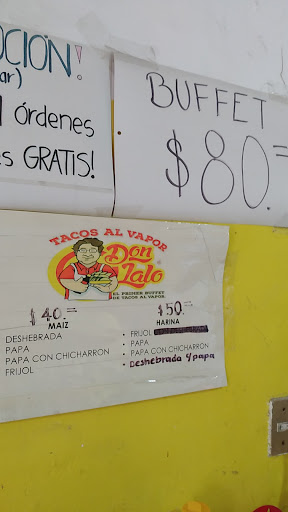 OCIÓN!
ar)
1 órdenes
s GRATIS!
BUFFET
$80.=
TACOS AL VAPOR
Don
Lalo
EL PRIMER BUFFET
DE TACOS AL VAPOR
$40.=
MAIZ
DESHEBRADA
PAPA
PAPA CON CHICHARRON
FRIJOL
$50.=
HARINA
• FRIJOL
• PAPA
• PAPA CON CHICHARRÓN
• Deshebrada y papa